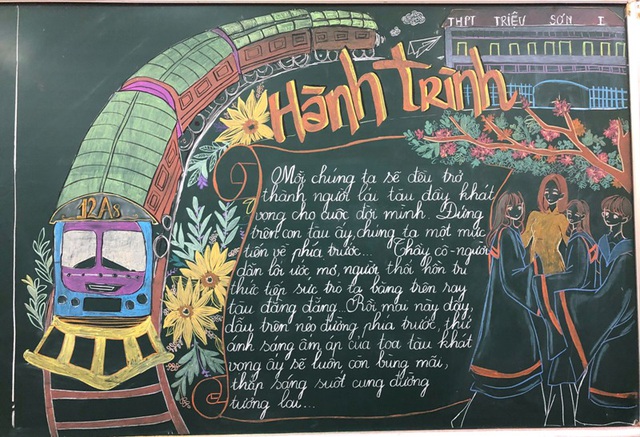 THPT TRIỆU SƠN I
Hành trình
12A3
Mỗi chúng ta sẽ đều trở
thành người lái tàu đầy khát
vọng cho cuộc đời mình. Đứng
trên con tàu ấy, chúng ta một mực
tiến về phía trước... Thầy cô-người
dẫn lối ước mơ, người thổi hồn tri
thức tiếp sức trò ta băng trên ray
tàu đằng đẵng... Rồi mai này đây,
đâu trên nẻo đường phía trước, thứ
ánh sáng ấm áp của toa tàu khát
vọng ấy sẽ luôn còn bùng mãi,
thắp sáng suốt cung đường
tương lai...